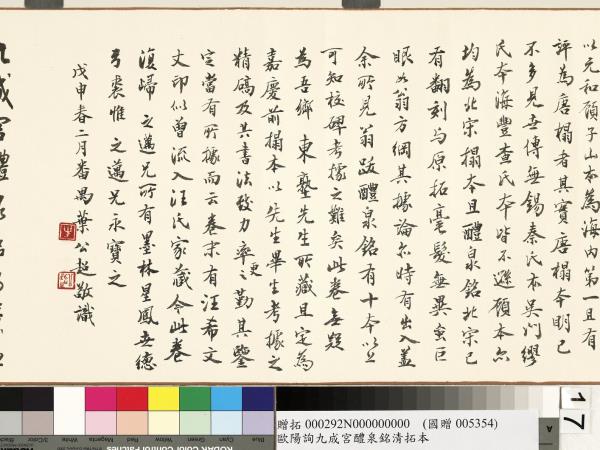 以元和顧子山本為海內第一且有
評為唐搨者其實唐搨本明已
不多見世傳無錫秦氏本吳門繆
氏本海豐查氏本皆不遜顧本尓
均為北宋搨本且醴泉銘北宋已
有翻刻与原拓毫髮無異雖巨
眼如翁方綱其據論尓時有出入蓋
余所見翁跋醴泉銘有十本以上
可知校碑考據之難矣此卷無疑
為吾鄉東塾先生所藏且定為
嘉慶前搨本以先生畢生考據之
精碻及其書法致力率更之勤其鑒
定當有所據而云卷末有汪希文
丈印似曾流入汪氏家藏今此卷
復歸之邁兄所有墨林星鳳世德
弓裘惟之邁兄永寶之
戊申春二月番禺葉公超敬識
九成宮醴泉銘
17
贈拓 000292N000000000 (國贈 005354)
歐陽詢九成宮醴泉銘清拓本
Black
3/Color
White
Magenta
Red
Yellow
Green
Cyan
Blue
KODAK Color Control Patches
A